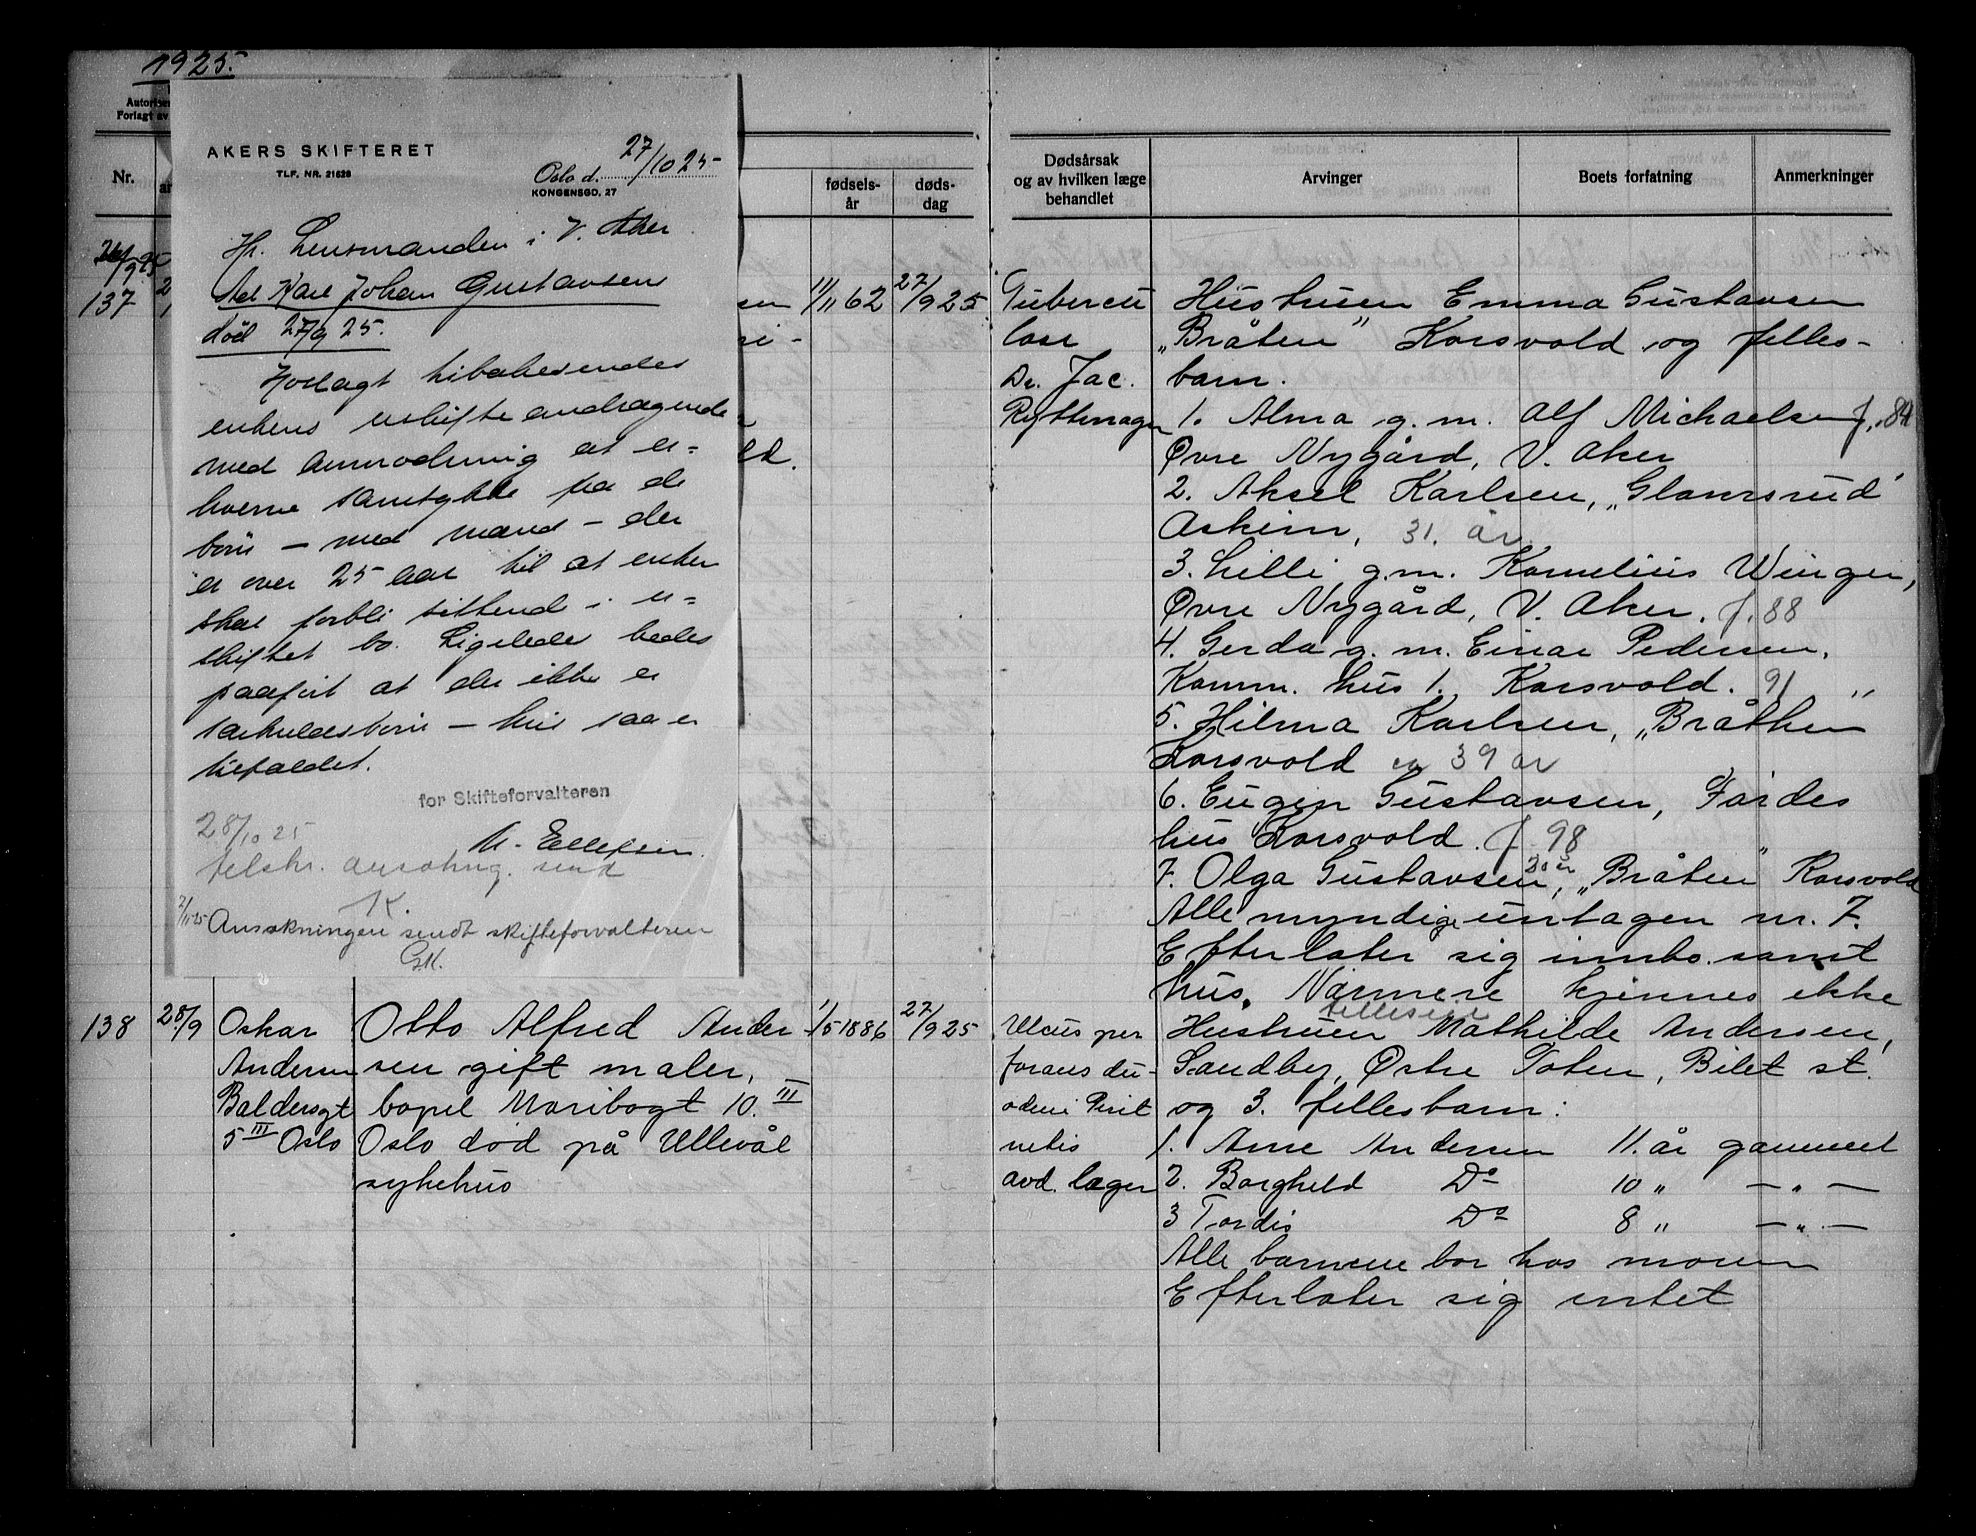 1925.
Autorise
Forlagt av
Nr.
AKERS SKIFTERET
TLF. NR. 21628
Oslo d. 27/10 25
KONGENSGD. 27
Hr. Lensmanden i V. Aker
Ad Karl Johan Gustavsen
død 27/9 25.
Forlagt tilbakesendes
enkens uskifteandragende
med anmodning at er=
hverve samtykke fra de
børn – med mænd – der
er over 25 aar til at enken
skal forbli sittende i u=
skiftet bo. Ligeledes bedes
paaført at der ikke er
særkuldsbørn – hvis saa er
tilfældet.
for Skifteforvalteren
M. Ellefsen
28/10 25
telskr. ansøkng. send
K.
2/11 25 Ansøkningen sendt skifteforvalteren
GK.
fødsels-
år
døds-
dag
Dødsårsak
og av hvilken læge
behandlet
Arvinger
Boets forfatning
Anmerkninger
26/9 25
137
sen 11/11 62 27/9 25
Tubercu
lose
Dr. Jac.
Ryttenager
Hustruen Emma Gustavsen
„Bråten" Korsvold og felles-
barn.
1. Alma g. m. Alf Michaelsen f. 84
Øvre Nygård, V. Aker
2. Aksel Karlsen, „Glamsrud"
Askim, 31. år
3. Lilli g. m. Kornelius Winger,
Øvre Nygård, V. Aker. f. 88
4. Gerda g. m. Einar Pedersen,
Komm. hus 1. Korsvold. 91 "
5. Hilma Karlsen, „Bråthen
Korsvold ca 39 år
6. Eugen Gustavsen, Fardes
hus Korsvold. f. 98
7. Olga Gustavsen, 20 år „Bråten" Korsvold
Alle myndige untagen nr. 7.
Efterlater sig innbo samt
hus. Nærmere kjennes ikke
138 28/9 Oskar
Andersen
Baldersgt
5 III Oslo
Otto Alfred Ander
sen gift maler,
bopel Maribogt 10. III
Oslo død på Ullevål
sykehus
1/5 1886 27/9 25
Ulcus per
forans du-
odeni Perit
netis
avd. læger
Hustruen Mathilde Andersen,
Sandby, Østre Toten, Bilet st.
og 3. fellesbarn:
1. Arne Andersen 11. år gammel
2. Borghild Do 10 " — " —
3 Tordis Do 8 " — " —
Alle barnene bor hos moren
Efterlater sig intet